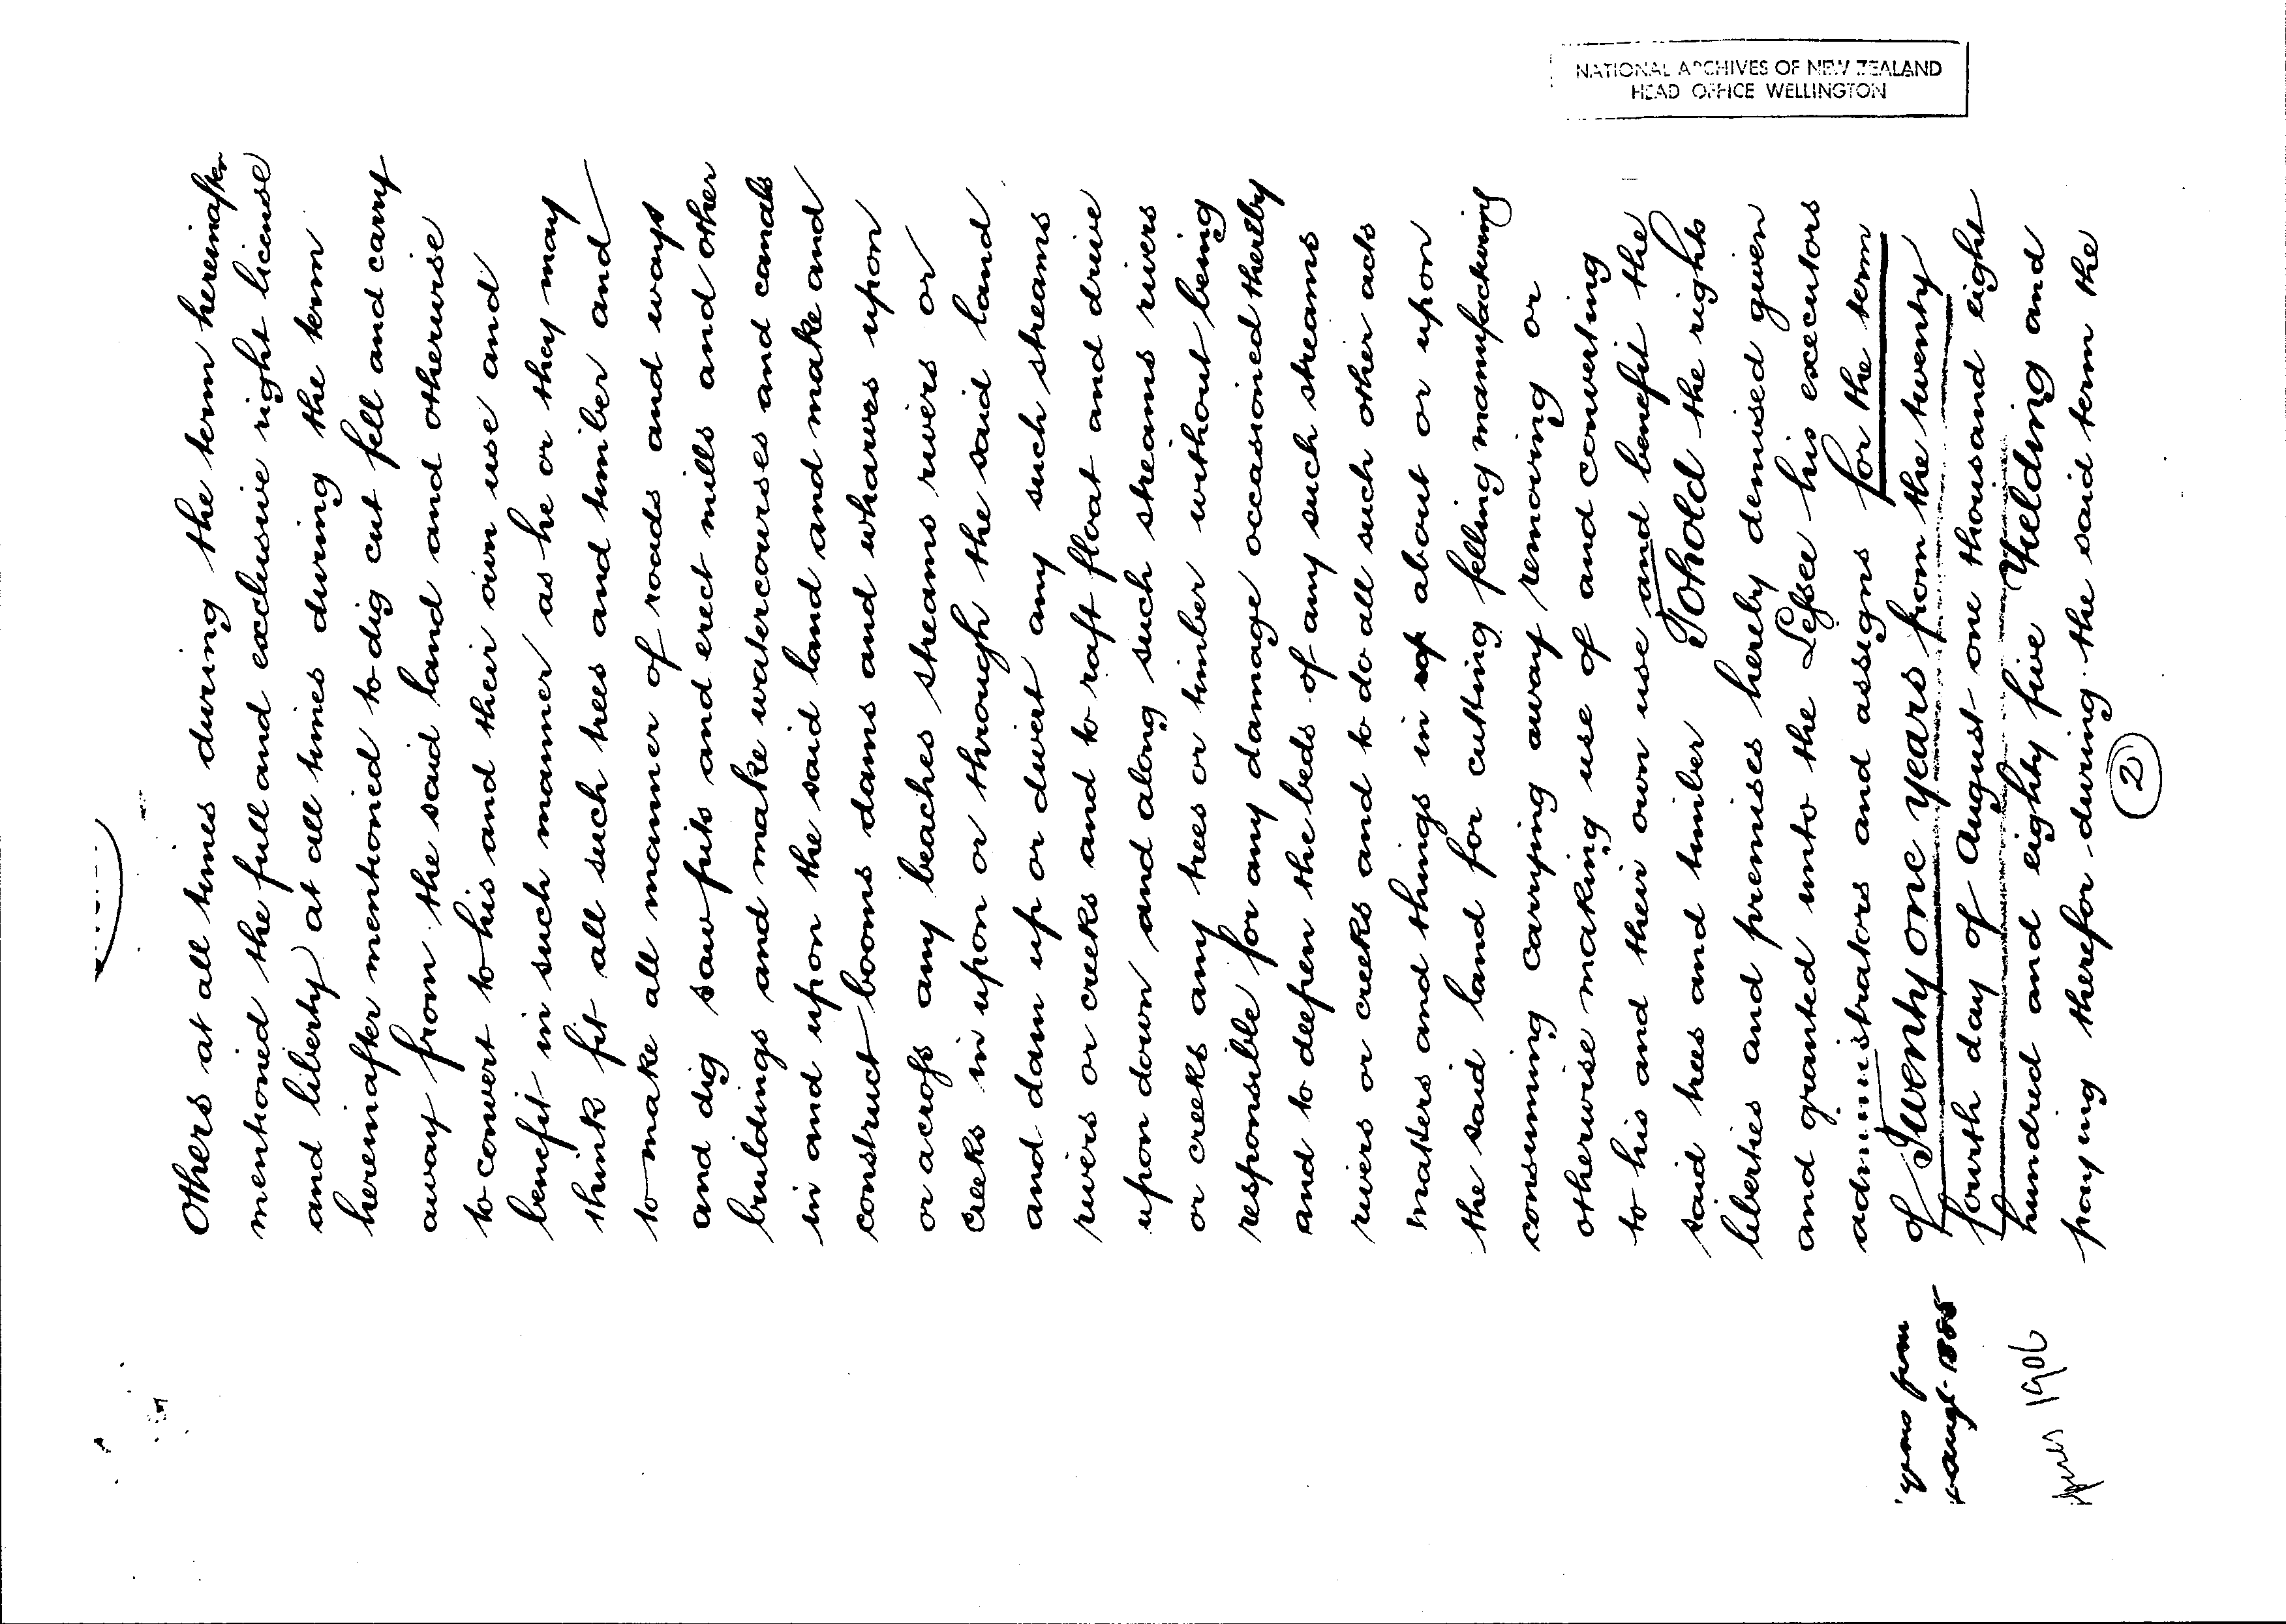 NATIONAL ARCHIVES OF NEW ZEALAND
HEAD OFFICE WELLINGTON
Others at all times during the term hereinafter
mentioned the full and exclusive right license
and liberty at all times during the term
hereinafter mentioned to dig cut fell and carry
away from the said land and otherwise
to convert to his and their own use and
benefit in such manner as he or they may
think fit all such trees and timber and
to make all manner of roads and ways
and dig saw pits and erect mills and other
buildings and make watercourses and canals
in and upon the said land and make and
construct booms dams and wharves upon
or across any beaches streams rivers or
creeks in upon or through the said land
and dam up or divert any such streams
rivers or creeks and to raft float and drive
upon down and along such streams rivers
or creeks any trees or timber without being
responsible for any damage occasioned thereby
and to deepen the beds of any such streams
rivers or creeks and to do all such other acts
matters and things in about or upon
the said land for cutting felling manufacturing
consuming carrying away removing or
otherwise making use of and converting
to his and their own use and benefit the
said trees and timber To hold the rights
liberties and premises hereby demised given
and granted unto the Lessee his executors
administrators and assigns for the term
of Twenty one years from the twenty
fourth day of August one thousand eight
hundred and eighty five Yielding and
paying therefor during the said term the
2
years from
Augt 1885
1906